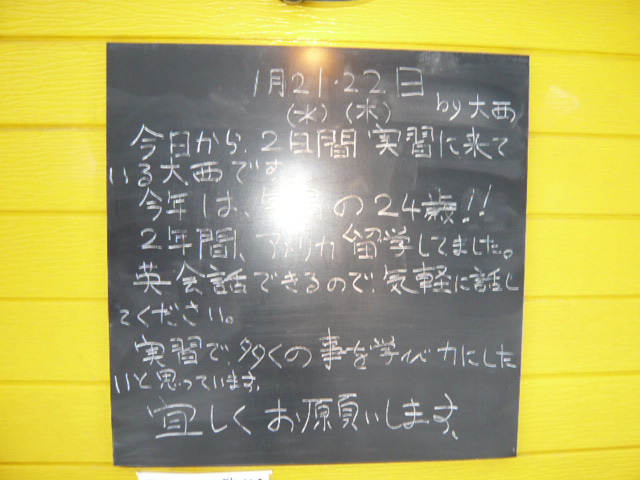 1月21・22日
(水)(木) by 大西
今日から、2日間 実習に来て
いる大西です
今年は、 の24歳!!
2年間、アメリカ留学してました。
英会話できるので、気軽に話し
てください。
実習で、多くの事を学び 力にした
いと思っています。
宜しくお願いします。